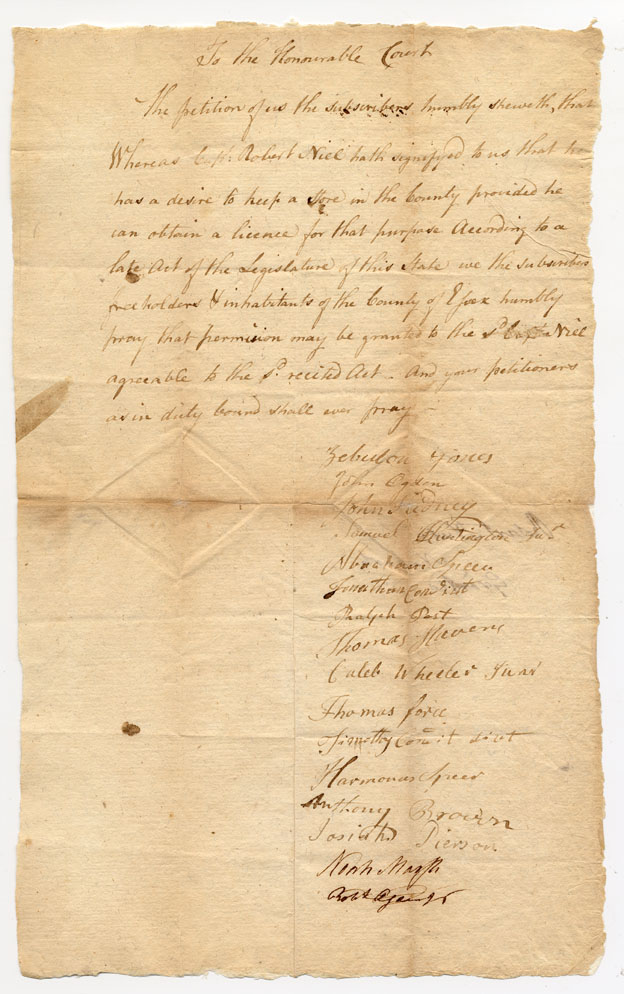 To the Honourable Court
The petition of us the subscribers humbly sheweth, that
Whereas Capt. Robert Niel hath signifyed to us that he
has a desire to keep a store in the County provided he
can obtain a licence for that purpose According to a
late Act of the Legislature of this State we the subscribers
freeholders & inhabitants of the County of Essex humbly
pray that permision may be granted to the sd. Capt. Niel
agreable to the sd. recited Act - And your petitioners
as in duty bound shall ever pray -
Zebulon Jones
John Ogden
John
Samuel Huntington Junr
Abraham Speer
Jonathan
Ralph Post
Thomas Stevens
Caleb Wheeler
Thomas force
Timothy
Harmonus Speer
Anthony Brown
Josiah Pierson
Noah
Robt